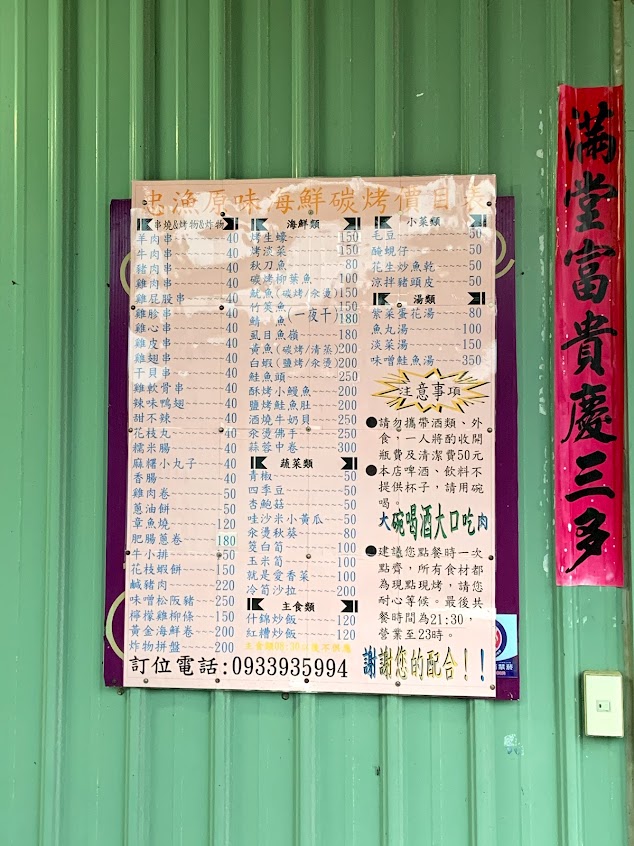 忠漁原味海鮮碳烤價目表
串燒&烤物&炸物
羊肉串 40
牛肉串 40
豬肉串 40
雞肉串 40
雞屁股串 40
雞胗串 40
雞心串 40
雞皮串 40
雞翅串 40
干貝串 40
雞軟骨串 40
辣味鴨翅 40
甜不辣 40
花枝丸 40
糯米腸 40
麻糬小丸子 40
香腸 40
雞肉卷 50
蔥油餅 50
章魚燒 120
肥腸蔥卷 180
牛小排 50
花枝蝦餅 150
鹹豬肉 220
味噌松阪豬 250
檸檬雞柳條 150
黃金海鮮卷 200
炸物拼盤 200
海鮮類
烤生蠔 150
烤淡菜 150
秋刀魚 80
碳烤柳葉魚 100
魷魚(碳烤/汆燙) 150
竹筴魚 150
鯖 魚(一夜干) 180
虱目魚嶺 180
黃魚(碳烤/清蒸) 200
白蝦(鹽烤/汆燙) 200
鮭魚頭 250
酥烤小鰻魚 200
鹽烤鮭魚肚 200
酒燒牛奶貝 250
汆燙佛手 250
蒜蓉中卷 300
蔬菜類
青椒 50
四季豆 50
杏鮑菇 50
哇沙米小黃瓜 50
汆燙秋葵 80
筊白筍 100
玉米筍 100
就是愛香菜 100
冷筍沙拉 200
主食類
什錦炒飯 120
紅糟炒飯 120
小菜類
毛豆 50
醃蜆仔 50
花生炒魚乾 50
涼拌豬頭皮 50
湯類
紫菜蛋花湯 80
魚丸湯 100
淡菜湯 150
味噌鮭魚湯 350
注意事項
●請勿攜帶酒類、外
食，一人將酌收開
瓶費及清潔費50元
●本店啤酒、飲料不
提供杯子，請用碗
喝。
大碗喝酒大口吃肉
●建議您點餐時一次
點齊，所有食材都
為現點現烤，請您
耐心等候。最後共
餐時間為21:30，
營業至23時。
訂位電話:0933935994
謝謝您的配合!!
滿堂富貴慶三多